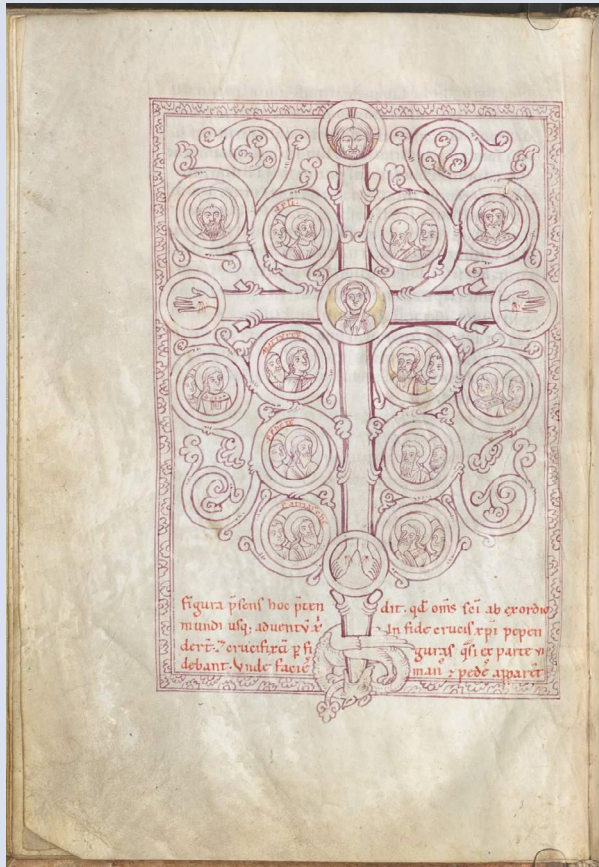 figura p̄sens hoc p̄ten dit. qđ om̄s sc̄i ab exordio
mundi usq; adventū x̄ in fide crucis xp̄i pepen
der̄t. ⁊ crucifixū p̄ fi guras q̄si ex parte vi
debant. Vnde facie man' ⁊ pede apparet